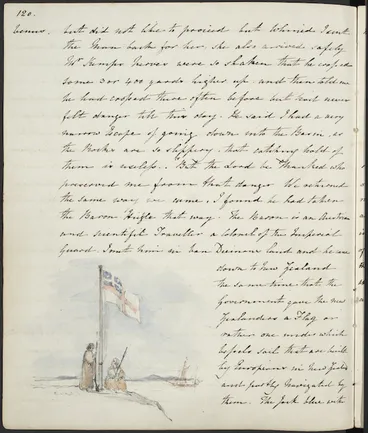 120.
Venus. but did not like to proceed but whined I sent
the Man back for her, she also arrived safely.
Mr Kemps nerves were so shaken that he crossed
some 3 or 400 yards higher up and then told me
he had crossed there often before but had never
felt danger till this day. He said I had a very
narrow escape of going down into the Basin, as
the Rocks are so slippery, that catching hold of
them is useless. But the Lord be thanked who
preserved me from that danger We returned
the same way we came. I found he had taken
the Baron Hugle that way. The Baron is an Austrian
and scientific Traveller a Colonel of the Imperial
Guard. I met him in Van Diemens Land and he came
down to New Zealand
the same time that the
Government gave the New
Zealanders a Flag or
rather one under which
Vessels sail that are built
by Europeans in New Zealand
and partly navigated by
them. The Jack blue with